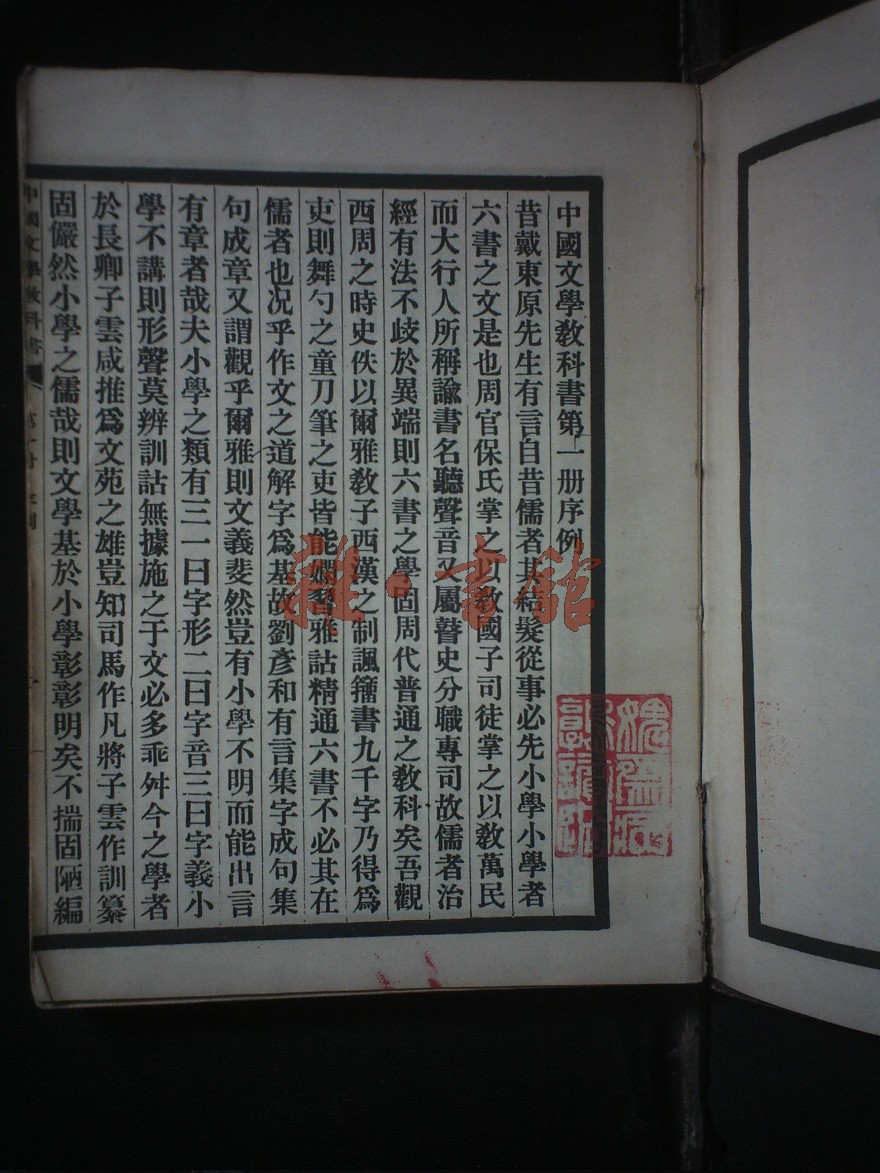 中國文學敎科書第一册序例
昔戴東原先生有言自昔儒者其結髮從事必先小學小學者
六書之文是也周官保氏掌之以敎國子司徒掌之以敎萬民
而大行人所稱諭書名聽聲音又屬瞽史分職專司故儒者治
經有法不歧於異端則六書之學固周代普通之敎科矣吾觀
西周之時史佚以爾雅敎子西漢之制諷籀書九千字乃得爲
吏則舞勺之童刀筆之吏皆能嫺習雅詁精通六書不必其在
儒者也况乎作文之道解字爲基故劉彥和有言集字成句集
句成章又謂觀乎爾雅則文義斐然豈有小學不明而能出言
有章者哉夫小學之類有三一曰字形二曰字音三曰字義小
學不講則形聲莫辨訓詁無據施之于文必多乖舛今之學者
於長卿子雲咸推爲文苑之雄豈知司馬作凡將子雲作訓纂
固儼然小學之儒哉則文學基於小學彰彰明矣不揣固陋編
中國文學敎科書
雜·書館